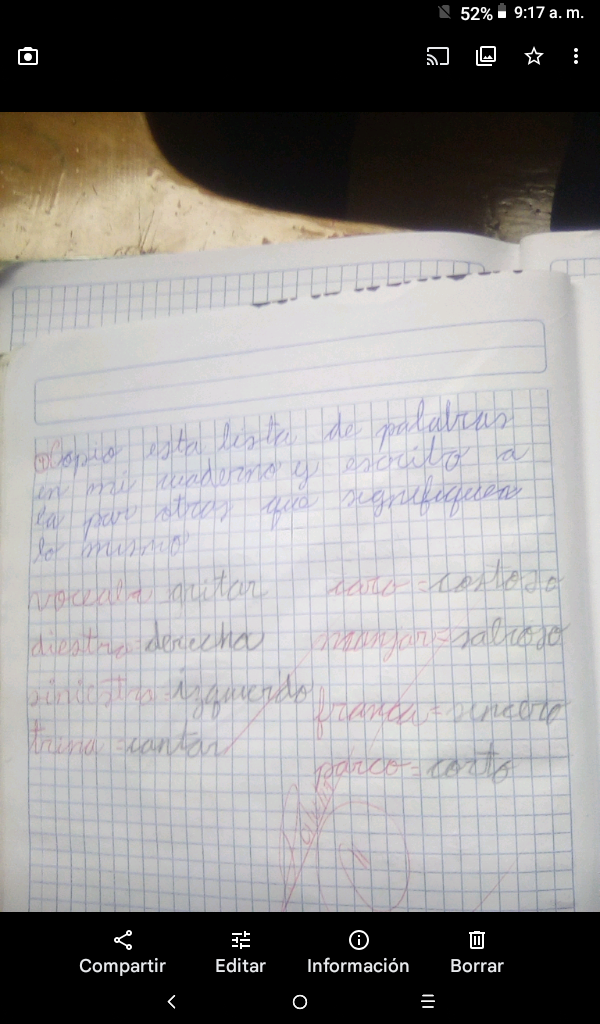 52% 9:17 a. m.
Copio esta lista de palabras
en mi cuaderno y escribo a
la par otras que signifiquen
lo mismo
gritar caro = costoso
diestra = derecha manjar = sabroso
siniestra = izquierdo
franca = sincero
trina = cantar
parco = corto
Compartir Editar Información Borrar